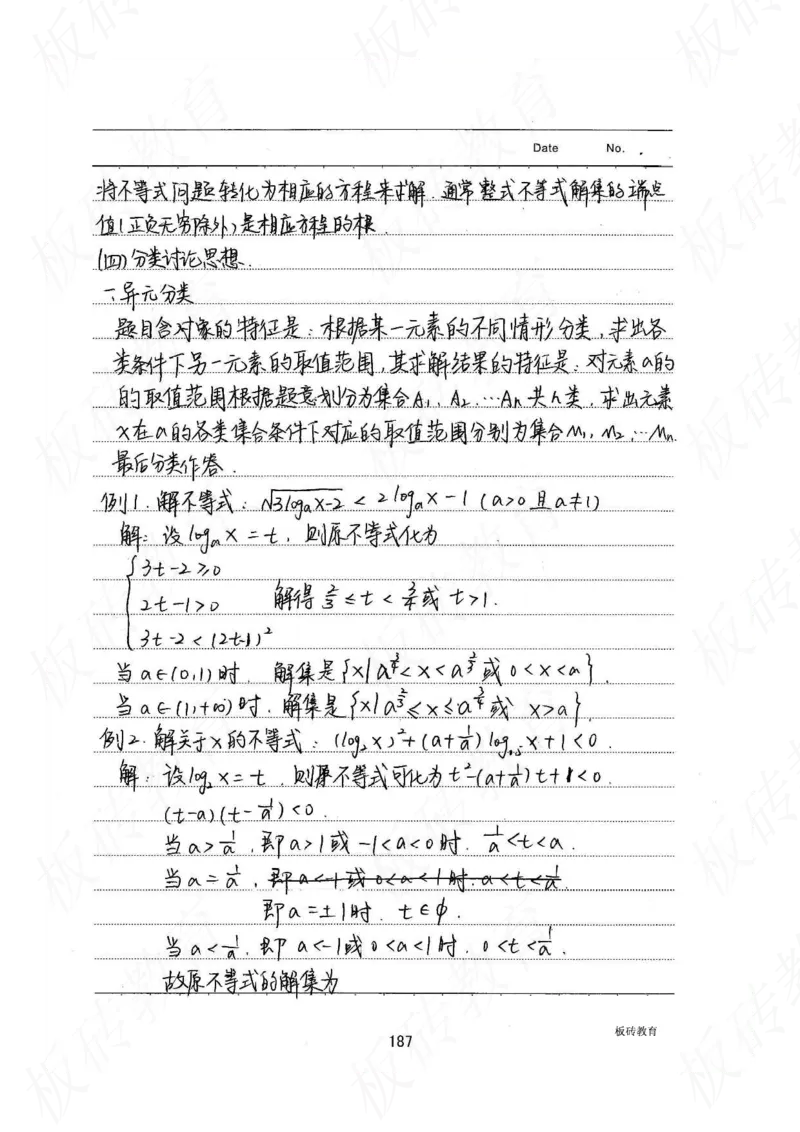 Date No.
将不等式问题转化为相应的方程来求解.通常整式不等式解集的端点
值(正负无穷除外)是相应方程的根
(四)分类讨论思想.
一、异元分类
题目含对象的特征是:根据某一元素的不同情形分类,求出各
类条件下另一元素的取值范围,其求解结果的特征是:对元素a的
的取值范围根据题意划分为集合A₁、A₂、…Aₙ共n类,求出元素
x在a的各类集合条件下对应的取值范围分别为集合M₁,M₂,…Mₙ.
最后分类作答.
例1.解不等式:√(3logₐx-2) < 2logₐx-1 (a>0且a≠1)
解:设logₐx=t,则原不等式化为
{3t-2≥0
2t-1>0 解得 2/3≤t<3/4或 t>1.
3t-2<(2t-1)²
当a∈(0,1)时.解集是{x|a^(3/4)<x<a^(2/3)或0<x<a}.
当a∈(1,+∞)时.解集是{x|a^(2/3)≤x≤a^(3/4)或 x>a}.
例2.解关于x的不等式:(log₂x)²+(a+1/a)log₀.₅x+1<0.
解:设log₂x=t.则原不等式可化为t²-(a+1/a)t+1<0.
(t-a)(t-1/a)<0.
当a>1/a,即a>1或-1<a<0时.1/a<t<a.
当a=1/a,即a<-1或0<a<1时.a<t<1/a.
即a=±1时.t∈φ.
当a<1/a.即a<-1或0<a<1时.0<t<1/a.
故原不等式的解集为
187
板砖教育